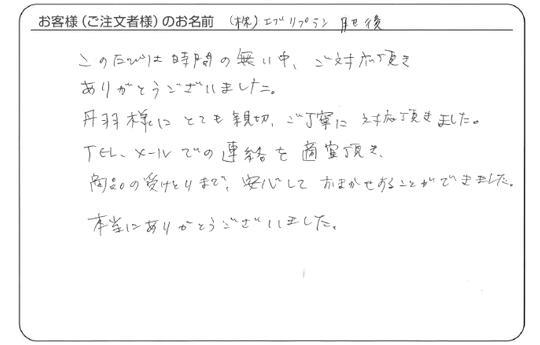 お客様（ご注文者様）のお名前 （株）エブリプラン 肥後
このたびは時間の無い中、ご対応頂き
ありがとうございました。
丹羽様にとても親切、ご丁寧に対応頂きました。
TEL、メールでの連絡を適宜頂き、
商品の受けとりまで、安心しておまかせすることができました。
本当にありがとうございました。